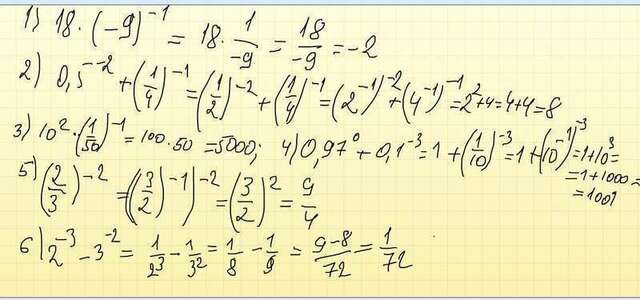 1) 18·(-9)⁻¹ = 18·1/-9 = 18/-9 = -2
2) 0,5⁻² + (1/4)⁻¹ = (1/2)⁻² + (1/4)⁻¹ = (2⁻¹)⁻² + (4⁻¹)⁻¹ = 2² + 4 = 4 + 4 = 8
3) 10²·(1/50)⁻¹ = 100·50 = 5000; 4) 0,97⁰ + 0,1⁻³ = 1 + (1/10)⁻³ = 1 + (10⁻¹)⁻³ = 1 + 10³ =
= 1 + 1000 =
= 1001
5) (2/3)⁻² = ((3/2)⁻¹)⁻² = (3/2)² = 9/4
6) 2⁻³ - 3⁻² = 1/2³ - 1/3² = 1/8 - 1/9 = 9-8/72 = 1/72